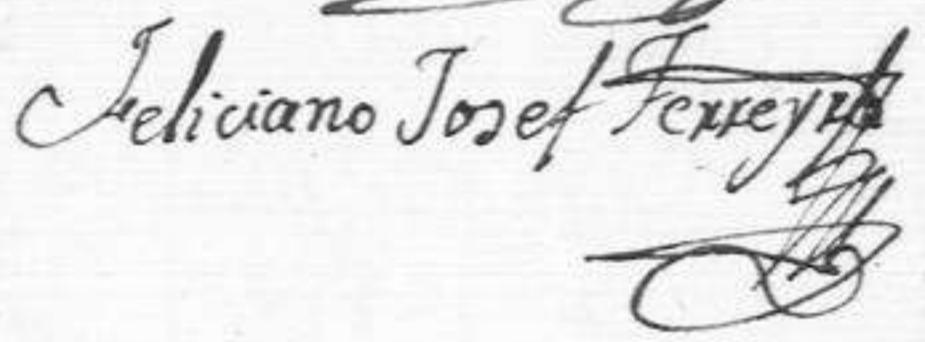 Feliciano Josef Ferreyra